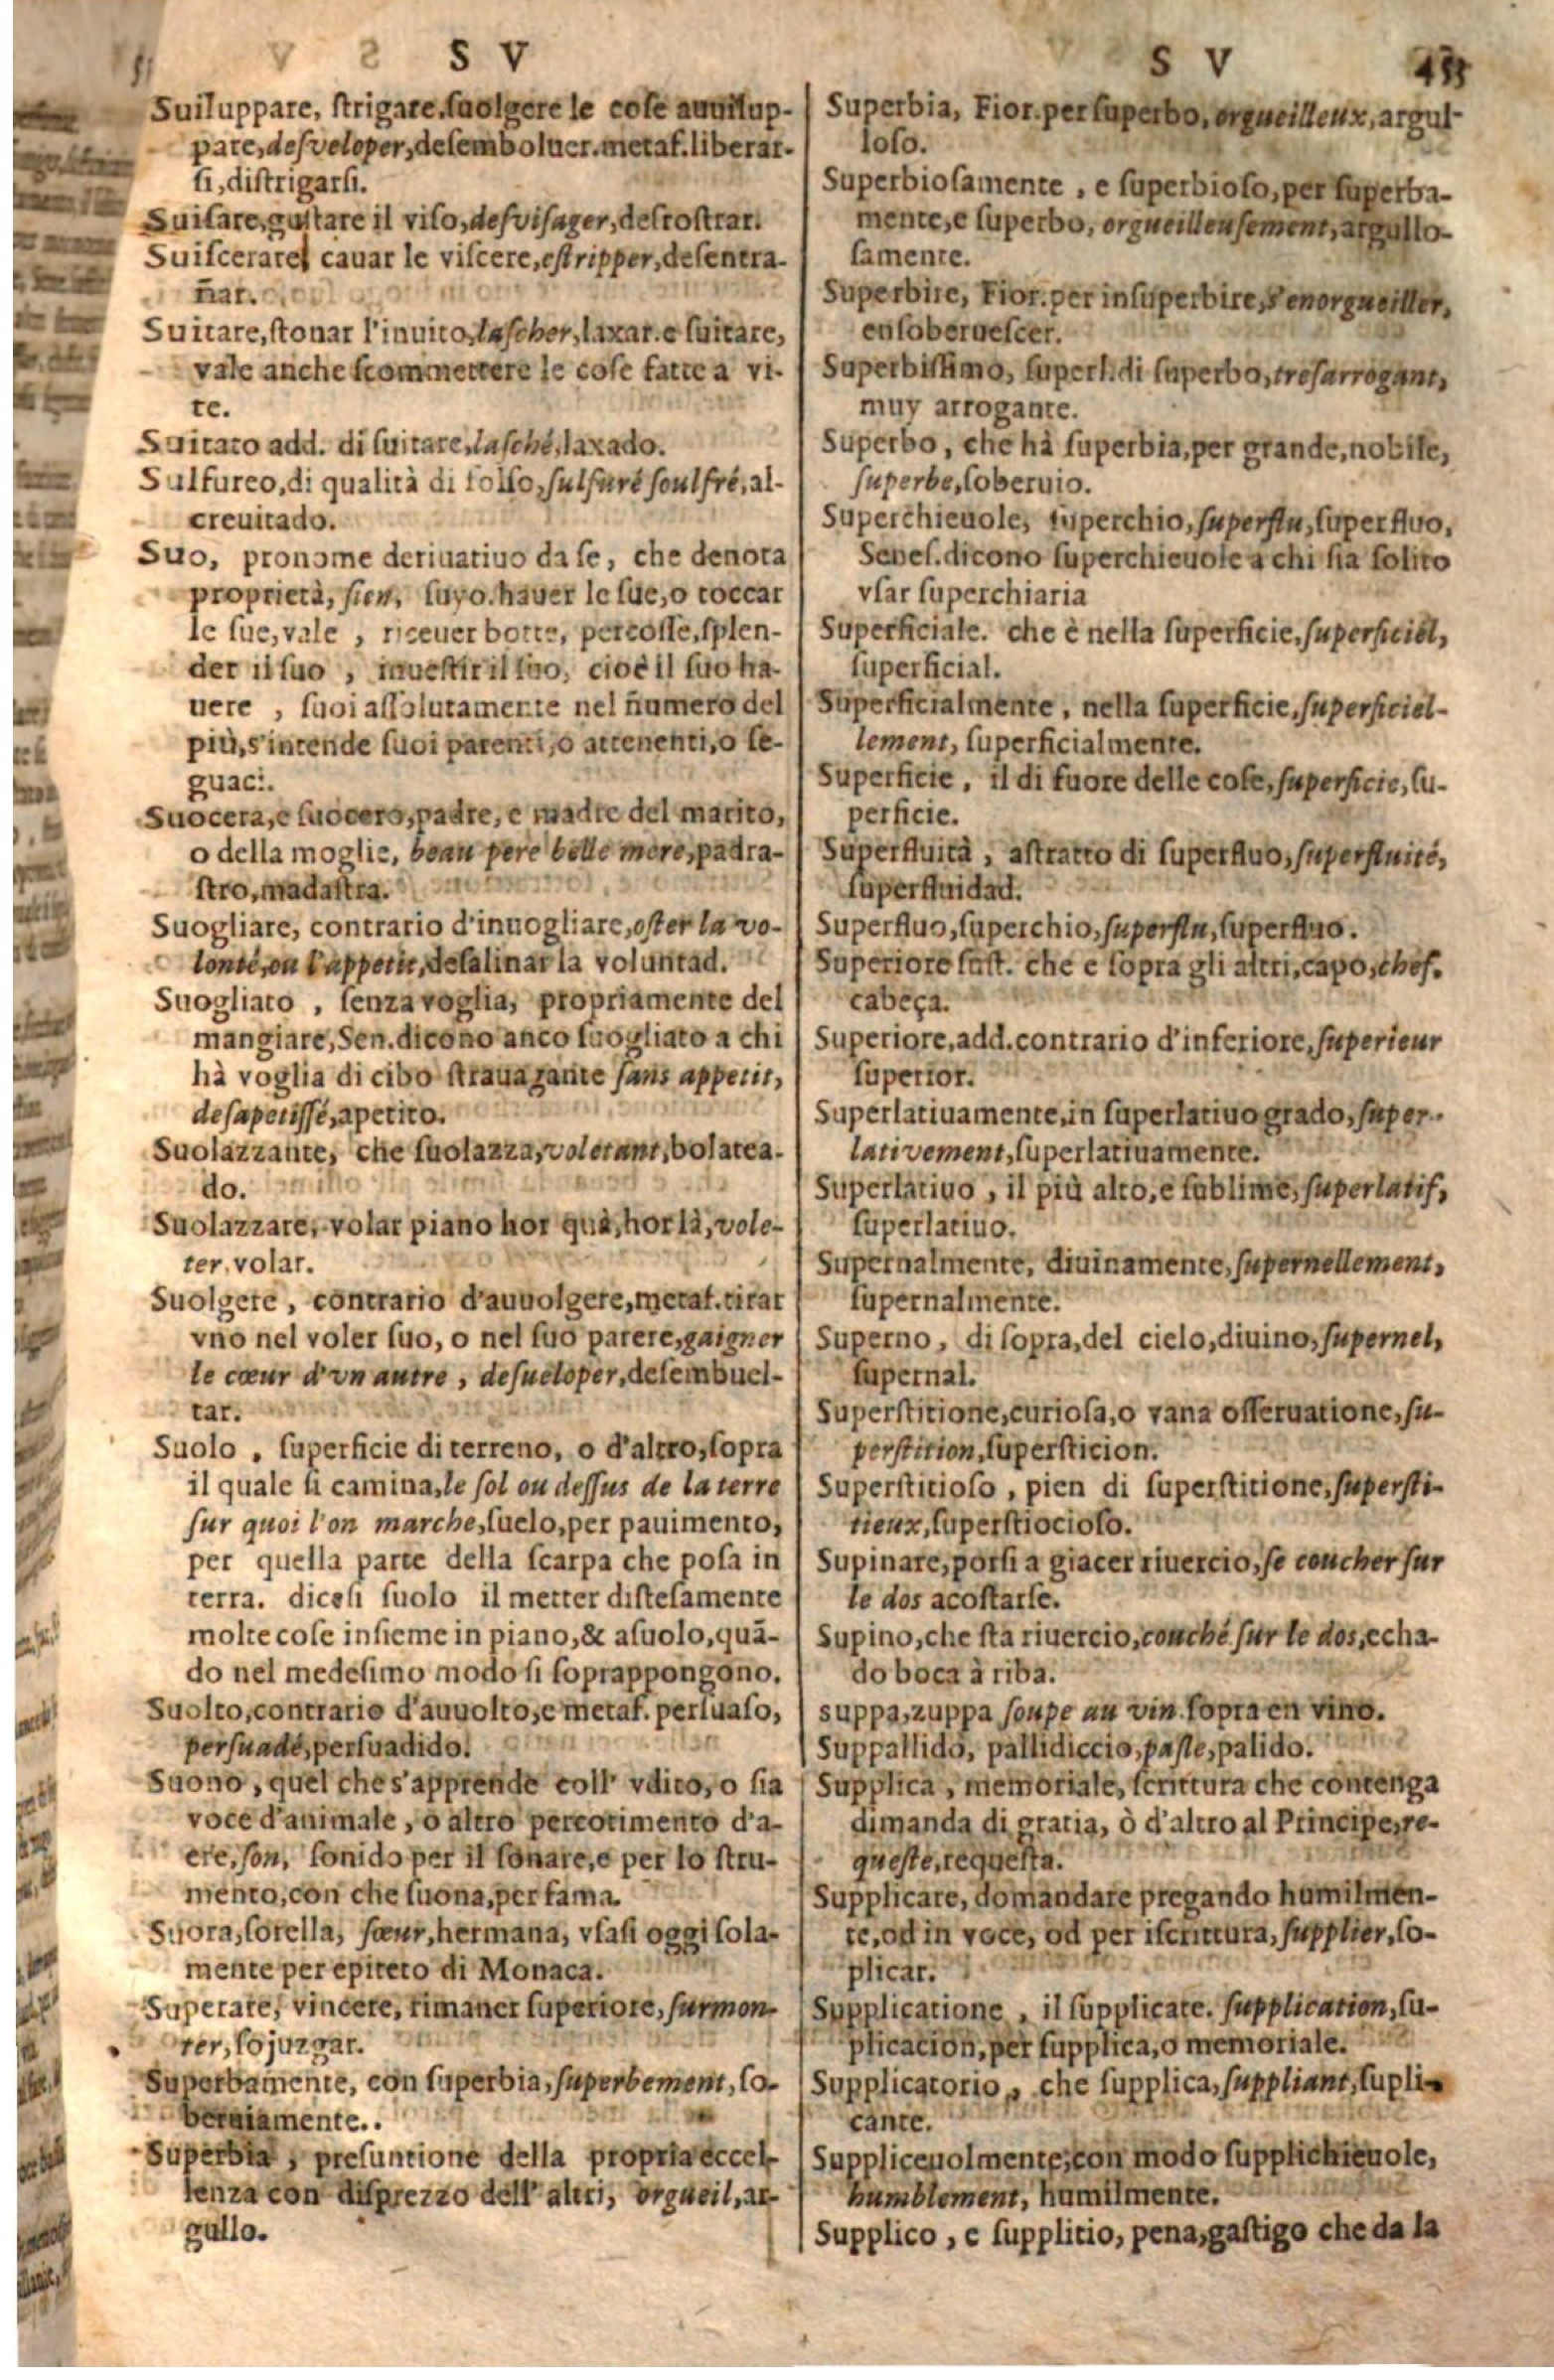 S V
Suiluppare, ſtrigare, ſuolgere le coſe auuilup-
pate, deſveloper, deſemboluer. metaf. liberar-
ſi, diſtrigarſi.
Suiſare, guſtare il viſo, deſviſager, deſroſtrar.
Suiſcerare, cauar le viſcere, eſtripper, deſentra-
ñar.
Suitare, ſtonar l'inuito, laſcher, laxar. e ſuitare,
vale anche ſcommettere le coſe fatte a vi-
te.
Suitato add. di ſuitare, laſché, laxado.
Sulfureo, di qualità di ſolfo, ſulfuré ſoulfré, al-
creuitado.
Suo, pronome deriuatiuo da ſe, che denota
proprietà, ſien, ſuyo. hauer le ſue, o toccar
le ſue, vale, riceuer botte, percoſſe, ſplen-
der il ſuo, inueſtir il ſuo, cioè il ſuo ha-
uere, ſuoi aſſolutamente nel ñumero del
più, s'intende ſuoi parenti, o attenenti, o ſe-
guaci.
Suocera, e ſuocero, padre, e madre del marito,
o della moglie, beau pere belle mere, padra-
ſtro, madaſtra.
Suogliare, contrario d'inuogliare, oſter la vo-
lonté, ou l'appetit, deſalinar la voluntad.
Suogliato, ſenza voglia, propriamente del
mangiare, Sen. dicono anco ſuogliato a chi
hà voglia di cibo ſtrauagante ſans appetit,
deſapetiſſé, apetito.
Suolazzante, che ſuolazza, voletant, bolatea-
do.
Suolazzare, volar piano hor quà, hor là, vole-
ter, volar.
Suolgere, contrario d'auuolgere, metaf. tirar
vno nel voler ſuo, o nel ſuo parere, gaigner
le cœur d'vn autre, deſueloper, deſembuel-
tar.
Suolo, ſuperficie di terreno, o d'altro, ſopra
il quale ſi camina, le ſol ou deſſus de la terre
ſur quoi l'on marche, ſuelo, per pauimento,
per quella parte della ſcarpa che poſa in
terra. diceſi ſuolo il metter diſteſamente
molte coſe inſieme in piano, & aſuolo, quā-
do nel medeſimo modo ſi ſoprappongono.
Suolto, contrario d'auuolto, e metaf. perſuaſo,
perſuadé, perſuadido.
Suono, quel che s'apprende coll' vdito, o ſia
voce d'animale, o altro percotimento d'a-
ere, ſon, ſonido per il ſonare, e per lo ſtru-
mento, con che ſuona, per fama.
Suora, ſorella, ſœur, hermana, vſaſi oggi ſola-
mente per epiteto di Monaca.
Superare, vincere, rimaner ſuperiore, ſurmon-
ter, ſojuzgar.
Superbamente, con ſuperbia, ſuperbement, ſo-
beruiamente..
Superbia, preſuntione della propria eccel-
lenza con diſprezzo dell' altri, orgueil, ar-
gullo.
S V 455
Superbia, Fior. per ſuperbo, orgueilleux, argul-
loſo.
Superbioſamente, e ſuperbioſo, per ſuperba-
mente, e ſuperbo, orgueilleuſement, argullo-
ſamente.
Superbire, Fior. per inſuperbire, s'enorgueiller,
enſoberueſcer.
Superbiſſimo, ſuperl. di ſuperbo, treſarrogant,
muy arrogante.
Superbo, che hà ſuperbia, per grande, nobile,
ſuperbe, ſoberuio.
Superchieuole, ſuperchio, ſuperflu, ſuperfluo,
Seneſ. dicono ſuperchieuole a chi ſia ſolito
vſar ſuperchiaria
Superficiale. che è nella ſuperficie, ſuperficiel,
ſuperficial.
Superficialmente, nella ſuperficie, ſuperficiel-
lement, ſuperficialmente.
Superficie, il di fuore delle coſe, ſuperficie, ſu-
perficie.
Superfluità, aſtratto di ſuperfluo, ſuperfluité,
ſuperfluidad.
Superfluo, ſuperchio, ſuperflu, ſuperfluo.
Superiore ſuſt. che e ſopra gli altri, capo, chef.
cabeça.
Superiore, add. contrario d'inferiore, ſuperieur
ſuperior.
Superlatiuamente, in ſuperlatiuo grado, ſuper-
lativement, ſuperlatiuamente.
Superlatiuo, il più alto, e ſublime, ſuperlatif,
ſuperlatiuo.
Supernalmente, diuinamente, ſupernellement,
ſupernalmente.
Superno, di ſopra, del cielo, diuino, ſupernel,
ſupernal.
Superſtitione, curioſa, o vana oſſeruatione, ſu-
perſtition, ſuperſticion.
Superſtitioſo, pien di ſuperſtitione, ſuperſti-
tieux, ſuperſtiocioſo.
Supinare, porſi a giacer riuercio, ſe coucher ſur
le dos acoſtarſe.
Supino, che ſta riuercio, couché ſur le dos, echa-
do boca à riba.
suppa, zuppa ſoupe au vin ſopra en vino.
Suppallido, pallidiccio, paſle, palido.
Supplica, memoriale, ſcrittura che contenga
dimanda di gratia, ò d'altro al Principe, re-
queſte, requeſta.
Supplicare, domandare pregando humilmen-
te, od in voce, od per iſcrittura, ſupplier, ſo-
plicar.
Supplicatione, il ſupplicare. ſupplication, ſu-
plicacion, per ſupplica, o memoriale.
Supplicatorio, che ſupplica, ſuppliant, ſupli-
cante.
Suppliceuolmente, con modo ſupplichieuole,
humblement, humilmente.
Supplico, e ſupplitio, pena, gaſtigo che da la